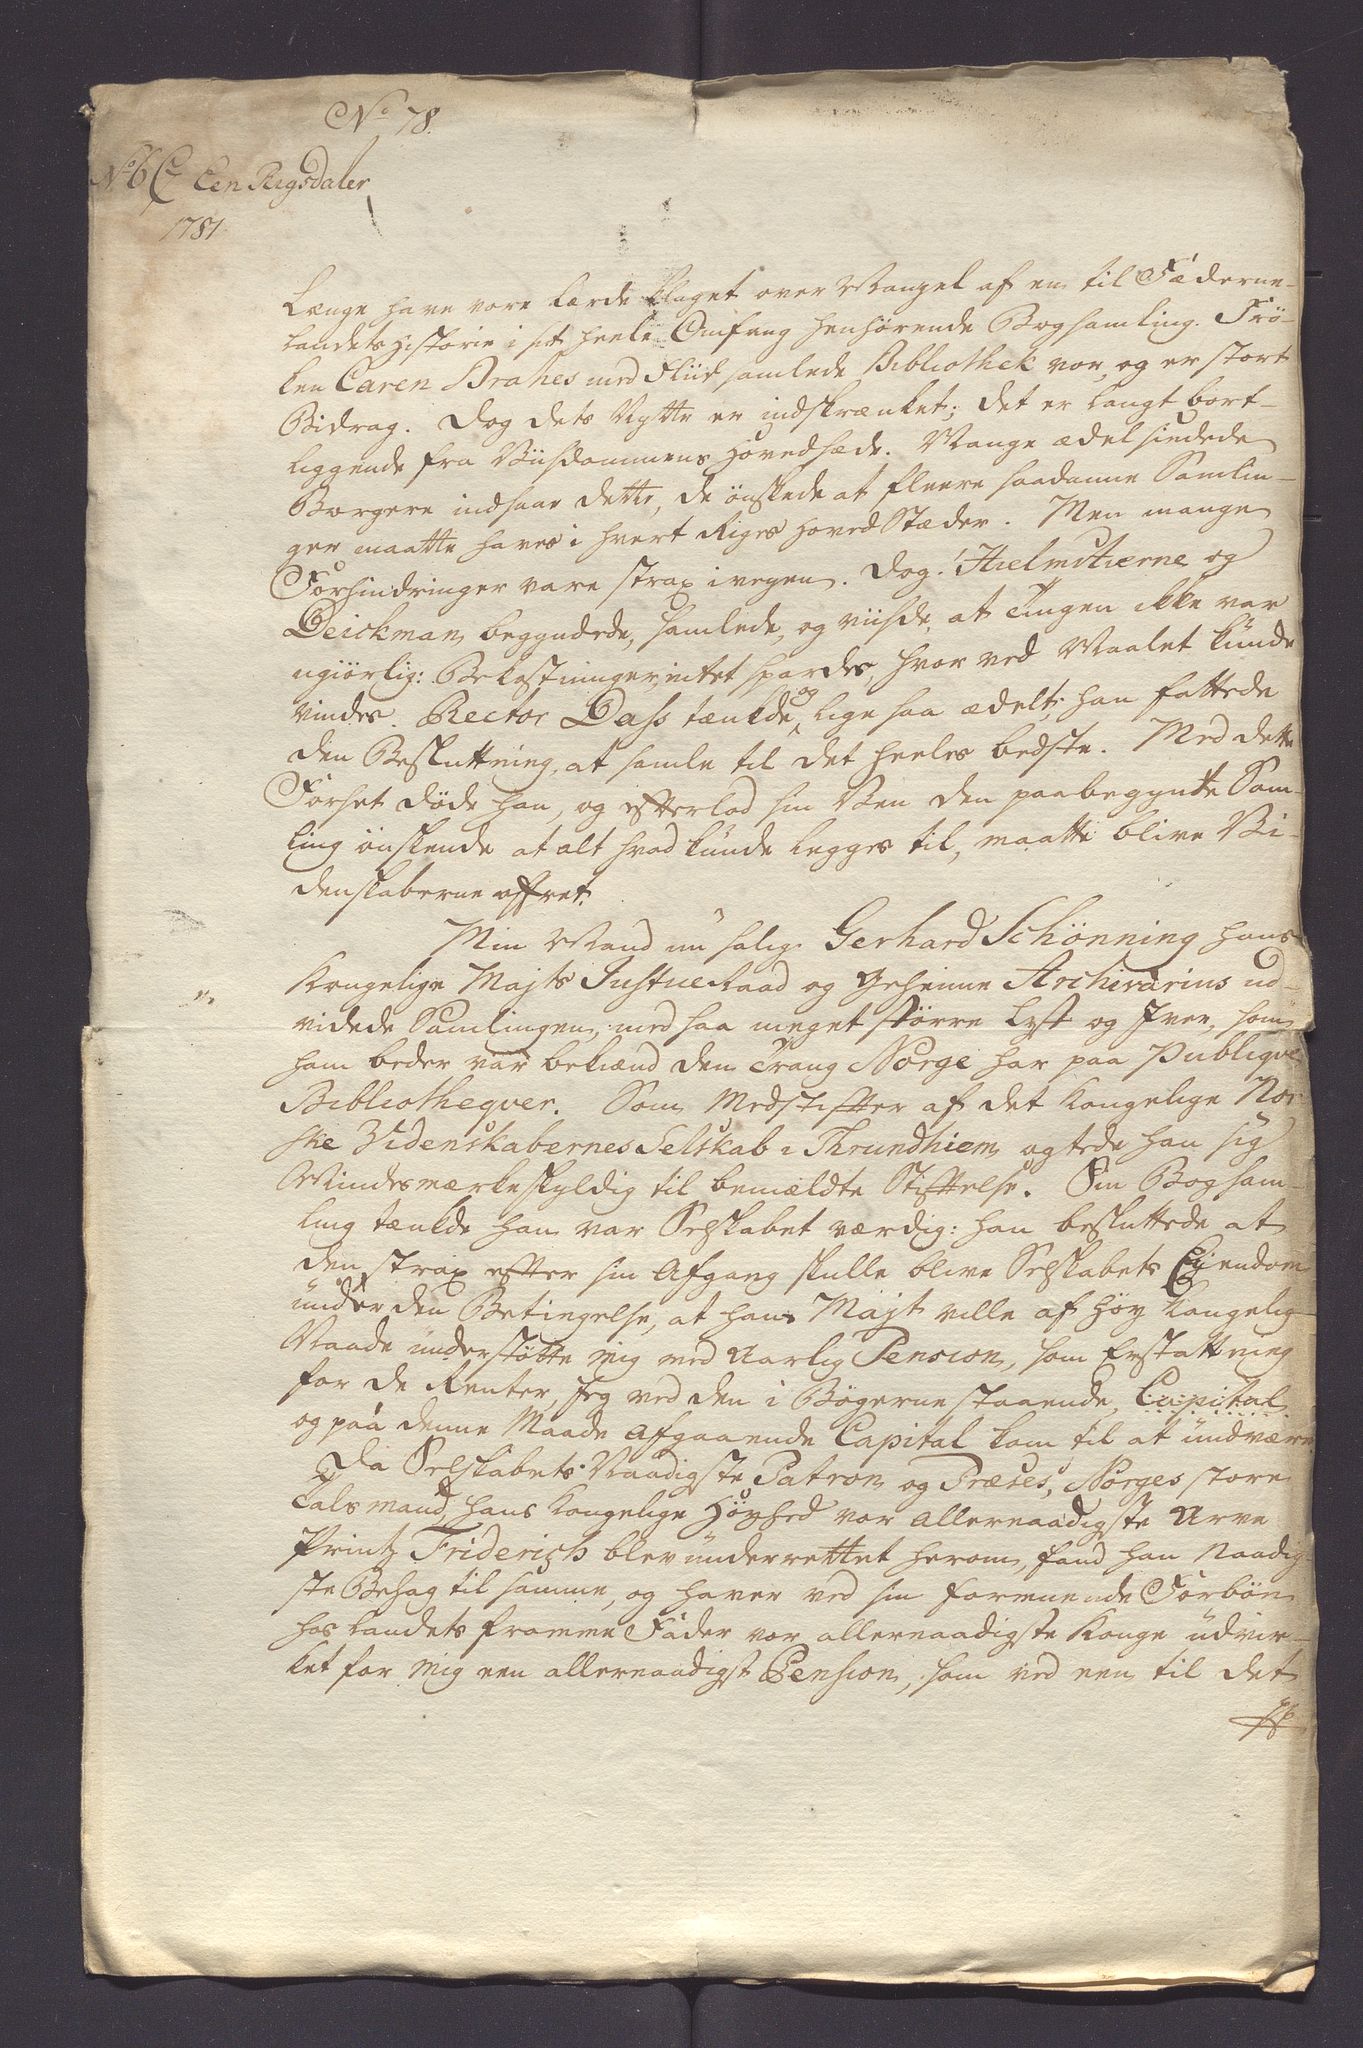 No 78.
No 6 C Een Rigsdaler
1781
Længe have vore Lærde klaget over Mangel af en til Fæderne-
landets Historie i sit heele Omfang henhørende Bogsamling. Frø-
ken Caren Brahes med Fliid samlede Bibliothek var, og er stort
Bidrag. Dog dets Nytte er indskrænket; det er langt bort-
liggende fra Viisdommens Hovedsæde. Mange ædelsindede
Borgere indsaae dette, de ønskede at fleere saadanne Samlin-
ger maatte haves i hvert Riges Hoved Stæder. Men mange
Forhindringer vare strax i vegen. Dog! Hielmstierne og
Deickman begyndede, samlede, og viisde, at Tingen ikke var
ugiørlig: Bekostninger intet spardes, hvor ved Maalet kunde
vindes. Rector Dass tænkde og lige saa ædelt; han fattede
den Besluttning, at samle til det heeles bedste. Med dette
Forset døde han, og efterlod sin Ven den paabegyndte Sam-
ling ønskende at alt hvad kunde legges til, maatte blive Vi-
denskaberne offret.
Min Mand nu salig Gerhard Schönning hans
Kongelige Majts Justice Raad og Geheime Archivarius ud-
videde Samlingen, med saa meget større Lyst og Iver, som
ham beder var bekiend den Trang Norge har paa Publique
Bibliothequer. Som Medstifter af det Kongelige Nor-
ske Videnskabernes Selskab i Thrundhiem agtede han sig
Mindesmærke skyldig til bemældte Stiftelse. Sin Bogsam-
ling tænkde han var Selskabet værdig: han besluttede at
den strax efter sin Afgang skulle blive Selskabets Ejendom
under den Betingelse, at hans Majt ville af høy Kongelig
Naade understøtte mig med Aarlig Pension, som Erstattning
for de Renter, jeg ved den i Bøgerne staaende, Capital
og paa denne Maade afgaaende Capital kom til at undvære
Da Selskabets Naadigste Patron og Præses, Norges store
Talsmand, hans Kongelige Høyhed vor allernaadigste Arve
Printz Friderich blev underrettet herom, fand han Naadig-
ste Behag til samme, og haver ved sin formaaende Forbøn
hos Landets fromme Fader vor allernaadigste Konge udvir-
ket for mig een allernaadigst Pension, som ved een til det